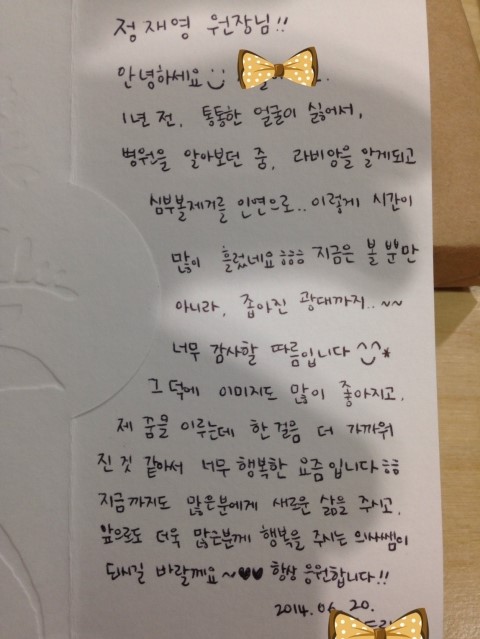 정재영 원장님!!
안녕하세요
1년 전, 통통한 얼굴이 싫어서,
병원을 알아보던 중, 라비앙을 알게되고
심부볼제거를 인연으로.. 이렇게 시간이
많이 흘렀네요 ㅎㅎㅎ 지금은 볼 뿐만
아니라, 좁아진 광대까지..~~
너무 감사할 따름입니다 ^^*
그 덕에 이미지도 많이 좋아지고,
제 꿈을 이루는데 한 걸음 더 가까워
진 것 같아서 너무 행복한 요즘입니다 ㅎㅎ
지금까지도 많은분에게 새로운 삶을 주시고,
앞으로도 더욱 많은분께 행복을 주시는 의사쌤이
되시길 바랄께요~♥♥ 항상 응원합니다!!
2014. 06. 20.